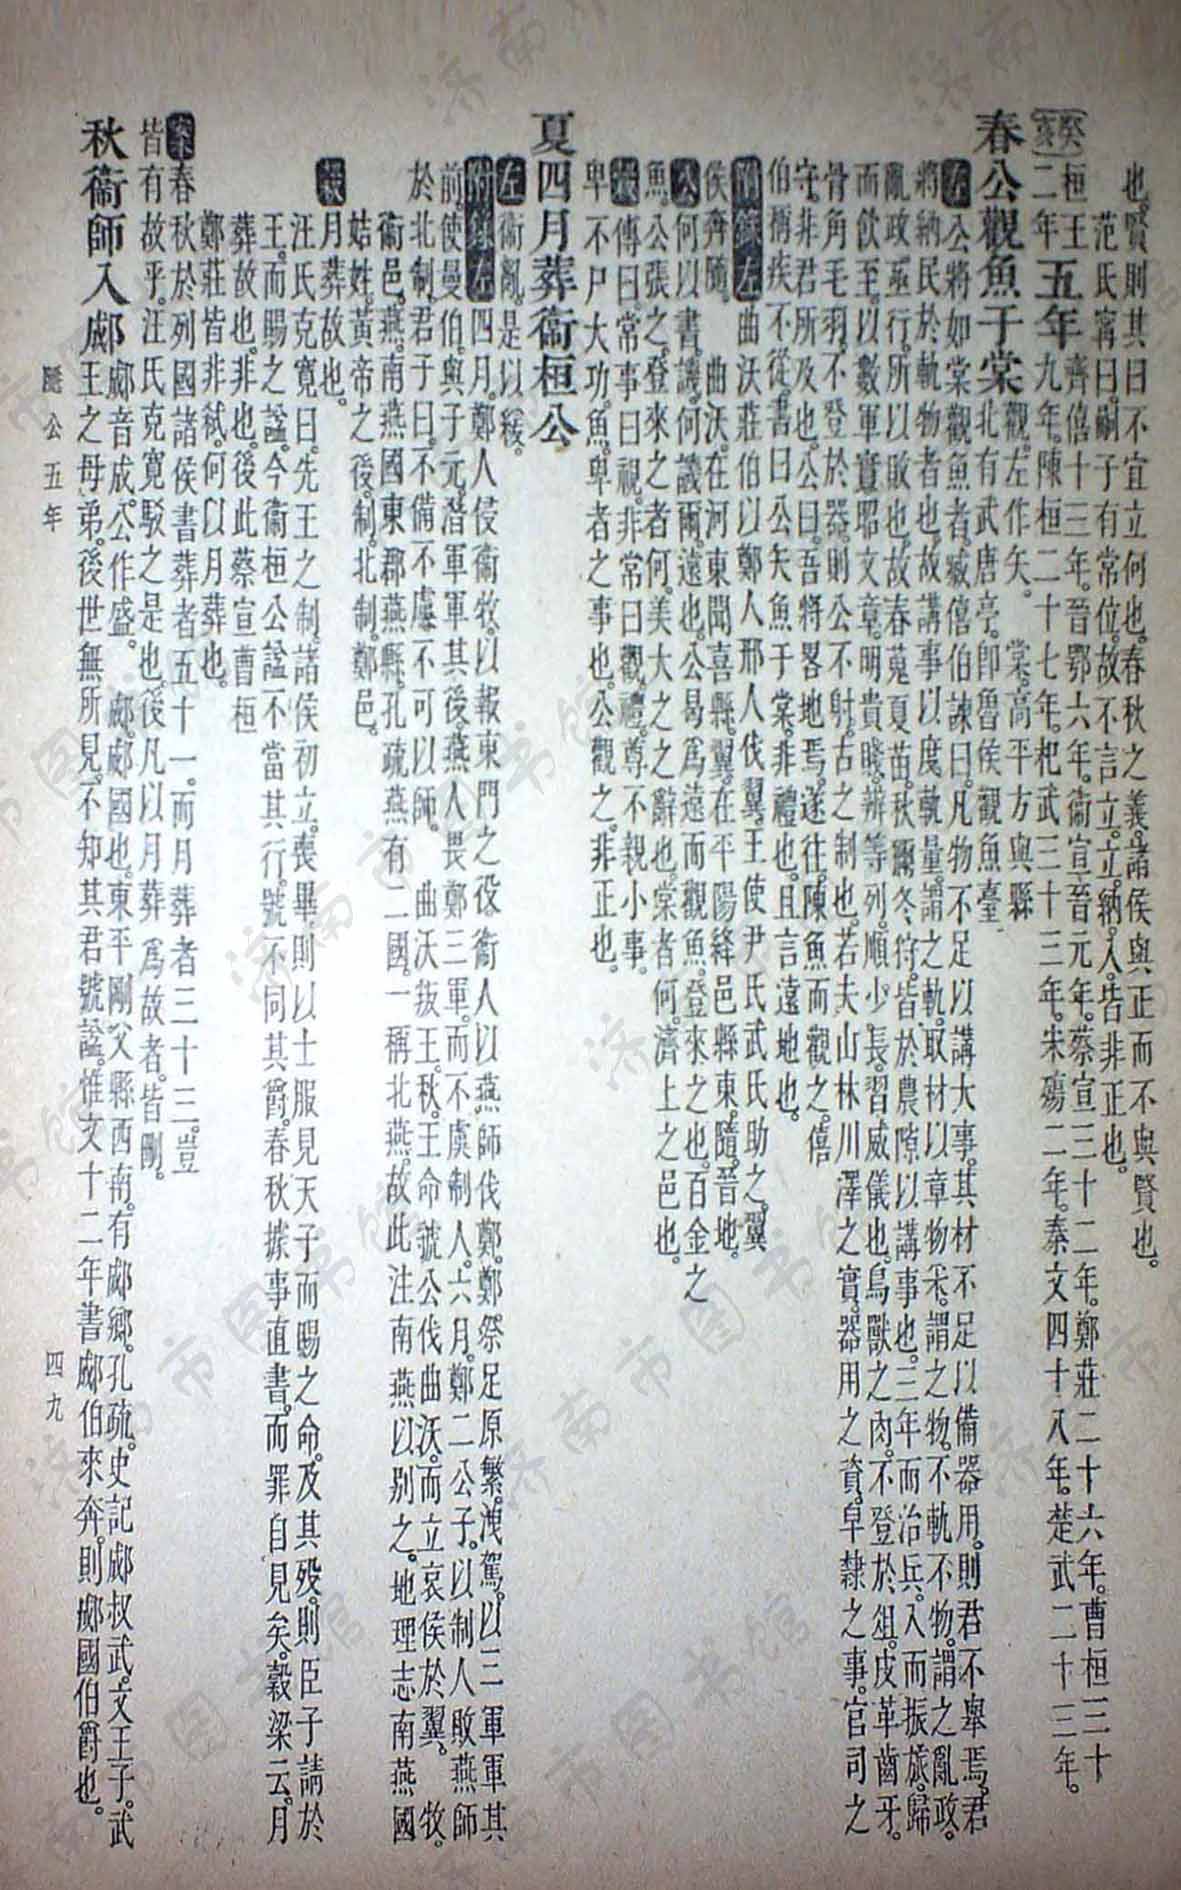 也。賢則其曰不宜立何也。春秋之義。諸侯與正而不與賢也。
范氏甯曰。嗣子有常位。故不言立。立。納。入。皆非正也。
癸亥
桓王二年
五年
齊僖十三年。晉鄂六年。衞宣晉元年。蔡宣三十二年。鄭莊二十六年。曹桓三十
九年。陳桓二十七年。杞武三十三年。宋殤二年。秦文四十八年。楚武二十三年。
春公觀魚于棠
觀。左作矢。 棠。高平方與縣
北有武唐亭。卽魯侯觀魚臺
左公將如棠觀魚者。臧僖伯諫曰。凡物不足以講大事。其材不足以備器用。則君不舉焉。君
將納民於軌物者也。故講事以度軌量。謂之軌。取材以章物采。謂之物。不軌不物。謂之亂政。
亂政亟行。所以敗也。故春蒐夏苗。秋獮冬狩。皆於農隙以講事也。三年而治兵。入而振旅。歸
而飮至。以數軍實。昭文章。明貴賤。辨等列。順少長。習威儀也。鳥獸之肉。不登於俎。皮革齒牙。
骨角毛羽。不登於器。則公不射。古之制也。若夫山林川澤之實。器用之資。皁隸之事。官司之
守。非君所及也。公曰。吾將畧地焉。遂往。陳魚而觀之。僖
伯稱疾不從。書曰公矢魚于棠。非禮也。且言遠地也。
附錄左曲沃莊伯以鄭人邢人伐翼。王使尹氏武氏助之。翼
侯奔隨。 曲沃。在河東聞喜縣。翼。在平陽絳邑縣東。隨。晉地。
公何以書。譏。何譏爾。遠也。公曷爲遠而觀魚。登來之也。百金之
魚。公張之。登來之者何。美大之之辭也。棠者何。濟上之邑也。
穀傳曰。常事曰視。非常曰觀。禮。尊不親小事。
卑不尸大功。魚。卑者之事也。公觀之。非正也。
夏四月葬衞桓公
左衞亂。是以緩。
附錄左四月。鄭人侵衞牧。以報東門之役。衞人以燕師伐鄭。鄭祭足原繁洩駕。以三軍軍其
前。使曼伯與子元。潛軍軍其後。燕人畏鄭三軍。而不虞制人。六月。鄭二公子。以制人敗燕師
於北制。君子曰。不備不虞。不可以師。 曲沃叛王。秋。王命虢公伐曲沃。而立哀侯於翼。 牧。
衞邑。燕。南燕國東郡燕縣。孔疏。燕有二國。一稱北燕。故此注南燕以別之。地理志南燕國
姞姓。黃帝之後。制。北制。鄭邑。
穀月葬。故也。
汪氏克寬曰。先王之制。諸侯初立。喪畢則以士服見天子而賜之命。及其歿。則臣子請於
王。而賜之諡。今衞桓公諡不當其行。號不同其爵。春秋據事直書。而罪自見矣。穀梁云。月
葬故也。非也。後此蔡宣曹桓
鄭莊皆非弒。何以月葬也。
案春秋於列國諸侯書葬者五十一。而月葬者三十三。豈
皆有故乎。汪氏克寬駁之是也。後凡以月葬爲故者。皆刪。
秋衞師入郕
郕音成。公作盛。 郕。郕國也。東平剛父縣西南。有郕鄉。孔疏。史記郕叔武。文王子。武
王之母弟。後世無所見。不知其君號諡。惟文十二年書郕伯來奔。則郕國伯爵也。
隱公五年
四九